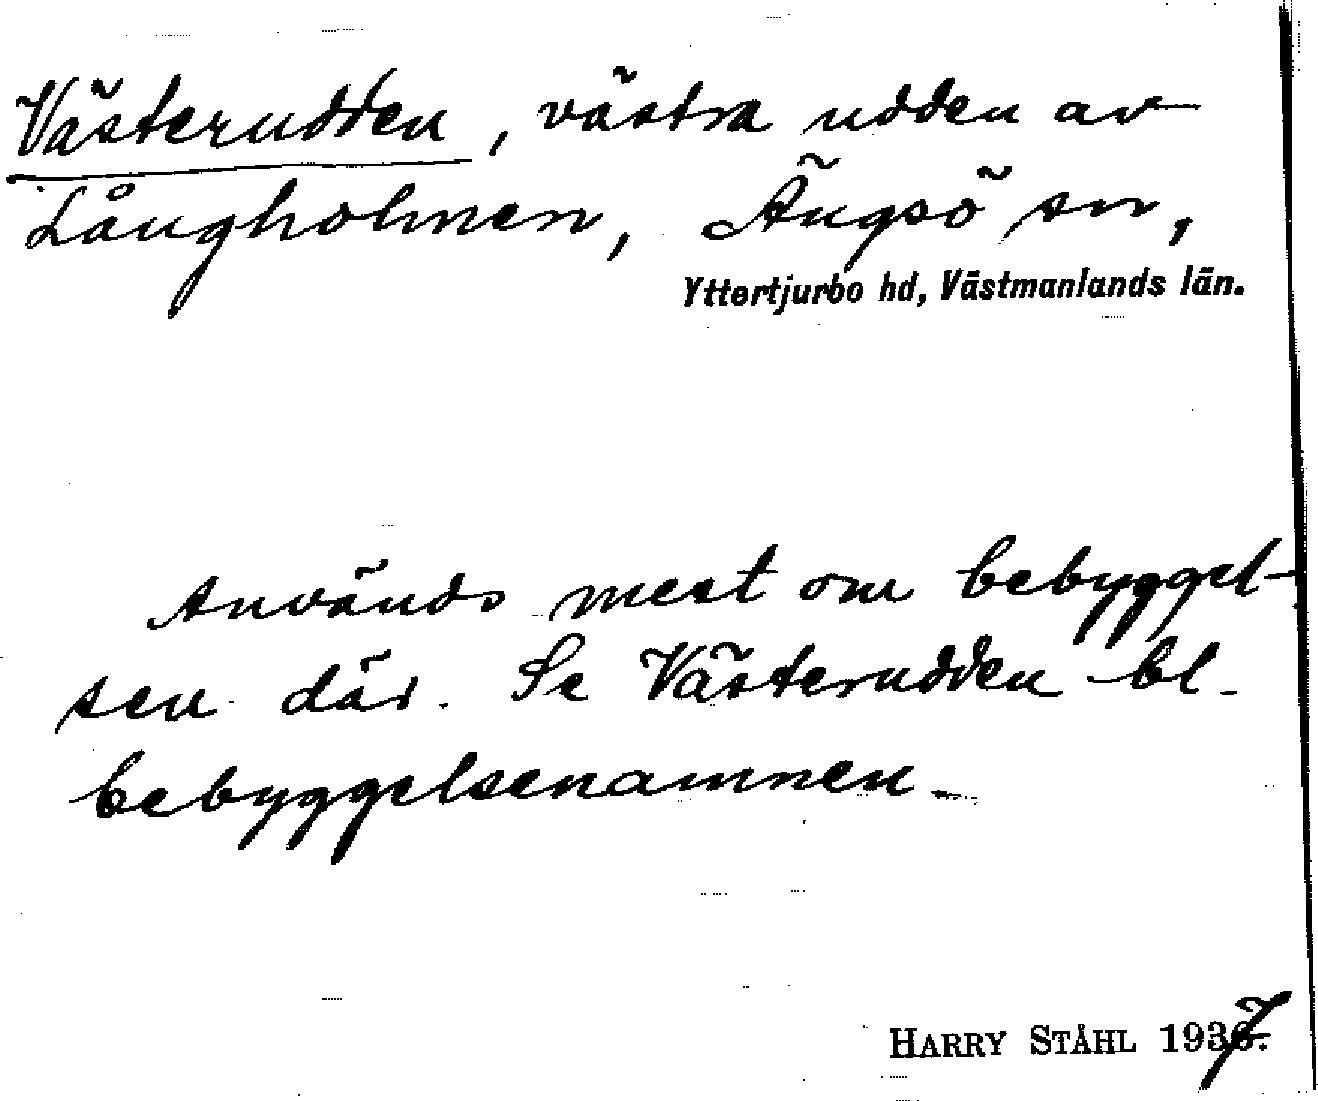 Västerudden, västra udden av
Långholmen, Ängsö sn,
Yttertjurbo hd, Västmanlands län.
Används mest om bebyggel-
sen där. Se Västerudden bl.
bebyggelsenamnen.
HARRY STÅHL 1937.